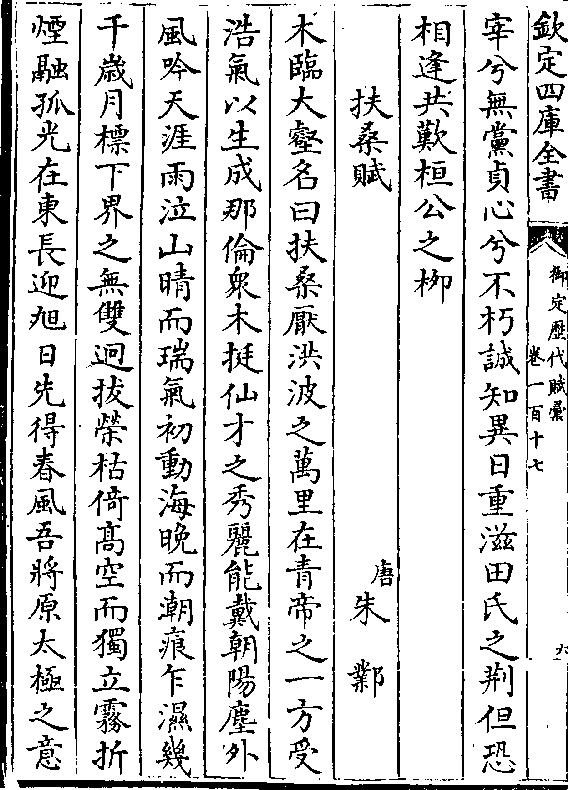 欽定四庫全書
御定歷代賦彙
卷一百十七
宰兮無黨貞心兮不朽誠知異日重滋田氏之荆但恐
相逢共歎桓公之柳
扶桑賦
唐朱鄴
木臨大壑名曰扶桑厭洪波之萬里在青帝之一方受
浩氣以生成那倫衆木挺仙才之秀麗能戴朝陽塵外
風吟天涯雨泣山晴而瑞氣初動海晚而潮痕乍濕幾
千歲月標下界之無雙迥拔榮枯倚髙空而獨立霧折
煙融孤光在東長迎旭日先得春風吾將原太極之意